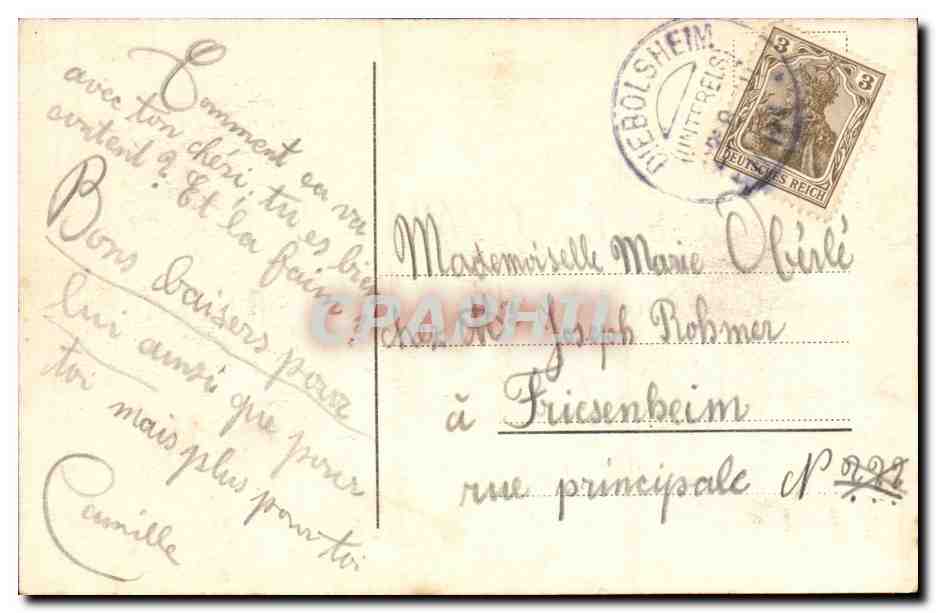 Comment ca va
avec ton chéri, tu es bien
content? Et la faim?
Bons baisers pour
lui ainsi que pour
toi mais plus pour toi
Camille
DIEBOLSHEIM
(UNTERELS
3 3
DEUTSCHES REICH
Mademoiselle Marie Obérlé
chez Mr Joseph Rohmer
à Friesenheim
rue principale N 222
CRAPHIL